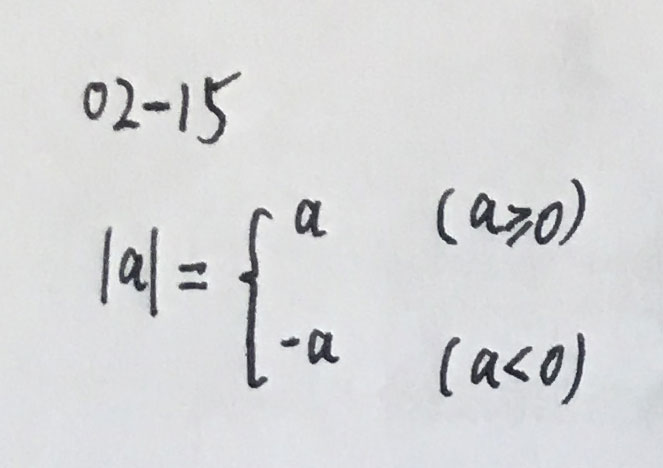 02-15
|a| = { a (a⩾0)
-a (a<0)